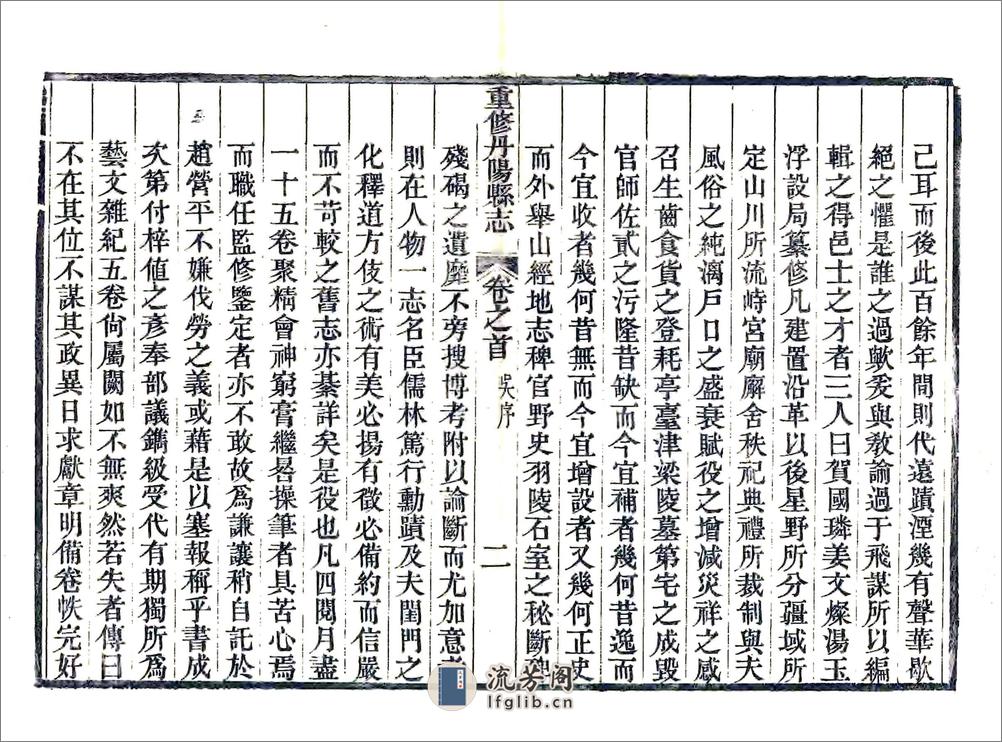 已耳而後此百餘年間則代遠蹟湮幾有聲華歇
絕之懼是誰之過歟爰與敎諭過于飛謀所以編
輯之得邑士之才者三人曰賀國璘姜文燦湯玉
浮設局纂修凡建置沿革以後星野所分疆域所
定山川所流峙宮廟廨舍秩祀典禮所裁制與夫
風俗之純漓戸口之盛衰賦役之增減災祥之感
召生齒食貨之登耗亭臺津梁陵墓第宅之成毀
官師佐貳之污隆昔缺而今宜補者幾何昔逸而
今宜收者幾何昔無而今宜增設者又幾何正史
而外舉山經地志稗官野史羽陵石室之秘斷碑
重修丹陽縣志 卷之首 吳序 二
殘碣之遺靡不旁搜博考附以論斷而尤加意者
則在人物一志名臣儒林篤行勳蹟及夫閨門之
化釋道方伎之術有美必揚有徵必備約而信嚴
而不苛較之舊志亦綦詳矣是役也凡四閱月盡
一十五卷聚精會神窮膏繼晷操筆者具苦心焉
而職任監修鑒定者亦不敢故爲謙讓稍自託於
趙營平不嫌伐勞之義或藉是以塞報稱乎書成
次第付梓値之彥奉部議鐫級受代有期獨所爲
藝文雜紀五卷尙屬闕如不無爽然若失者傳曰
不在其位不謀其政異日求獻章明備卷帙完好
流芳阁
lfglib.cn